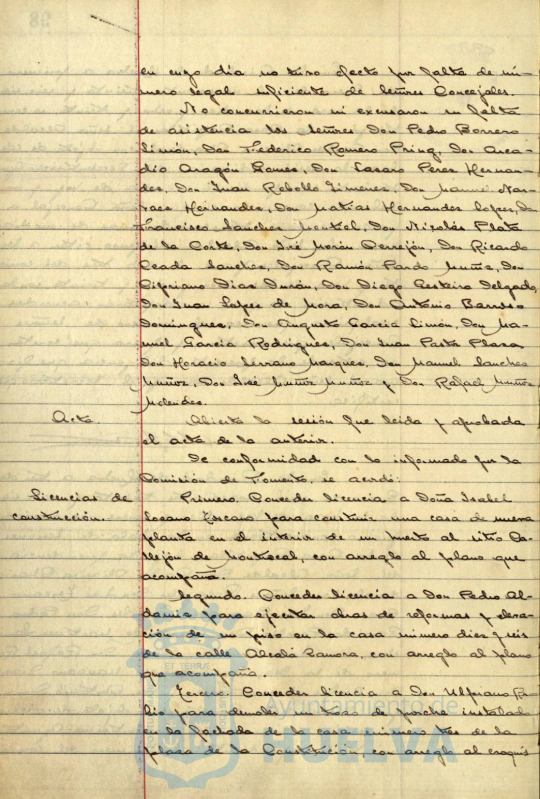 en cuyo dia no tuvo efecto por falta de nú-
mero legal suficiente de Señores Concejales.
No concurrieron ni excusaron su falta
de asistencia los Señores Don Pedro Borrero
Limón, Don Federico Romero Pring, Don Arca-
dio Aragón Gomez, Don Lazaro Perez Hernan-
dez, Don Juan Rebollo Jimenez, Don Manuel Nar-
vaez Hernandez, Don Matias Hernandez Lopez, Don
Francisco Sanchez Montiel, Don Nicolás Plata
de la Corte, Don José Morán Perrejón, Don Ricardo
Ceada Sanchez, Don Ramón Pardo Muñiz, Don
Cipriano Diaz Durán, Don Diego Gesteiro Delgado,
Don Juan Lopez de Mora, Don Antonio Barroso
Dominguez, Don Augusto Garcia Limón, Don Ma-
nuel Garcia Rodriguez, Don Juan Plaza
Don Horacio Serrano Marquez, Don Manuel Sanchez
Muñoz, Don José Muñoz Muñoz y Don Rafael Muñoz
Melendez.
Acta. Abierta la sesión fue leida y aprobada
el acta de la anterior.
De conformidad con lo informado por la
Comisión de Fomento, se acordó:
Licencias de Primero. Conceder licencia a Doña Isabel
construcción. Lozano Toscano para construir una casa de nueva
planta en el interior de un huerto al sitio Ca-
llejón de Montrocal, con arreglo al plano que
acompaña.
Segundo. Conceder licencia a Don Pedro Al-
damiz para ejecutar obras de reformas y eleva-
ción de un piso en la casa número diez y seis
de la calle Alcalá Zamora, con arreglo al plano
que acompaña.
Tercero. Conceder licencia a Don Ulpiano Ru-
bio para demoler un trozo de instalado
en la fachada de la casa número tres de la
plaza de la Constitución, con arreglo al croquis
Ayuntamiento de
HUELVA